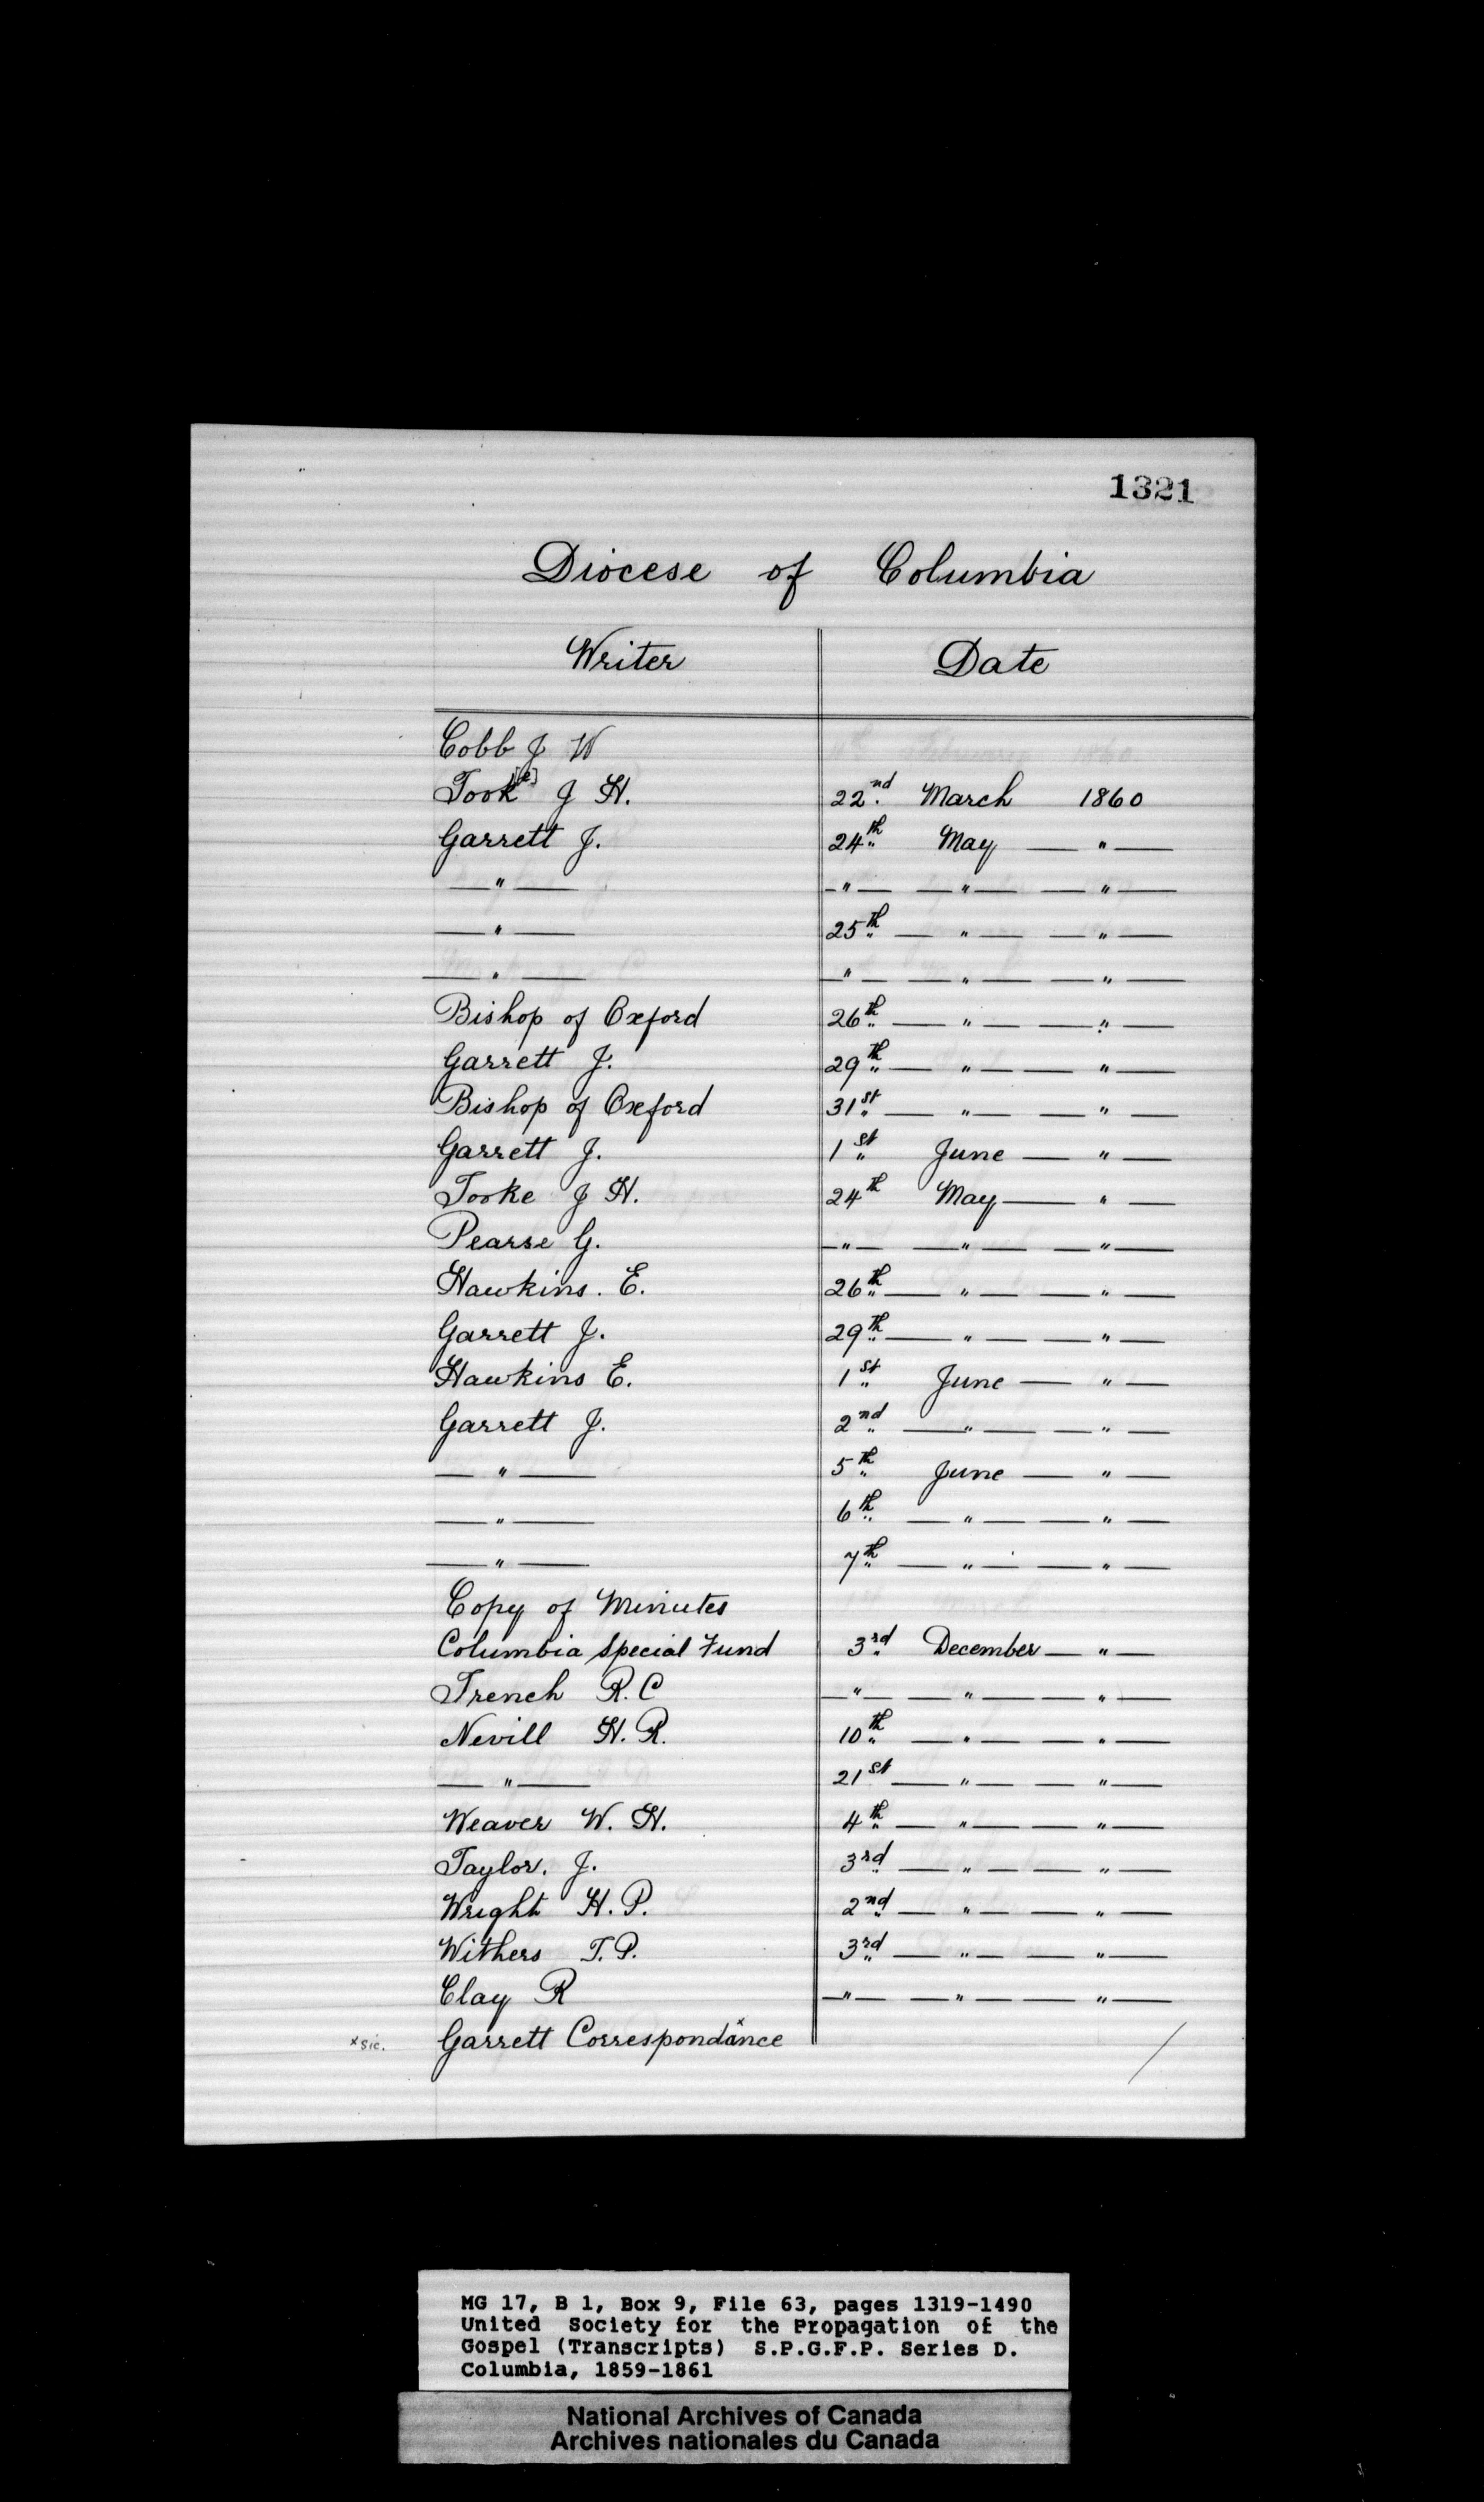 1321
Diocese of Columbia
Writer Date
Cobb J W
Took[e] J H. 22nd. March 1860
Garrett J. 24th May — " —
— " — — " — — " — — " —
— " — 25th — " — — " —
— " — — " — — " — — " —
Bishop of Oxford 26th — " — — " —
Garrett J. 29th — " — — " —
Bishop of Oxford 31st — " — — " —
Garrett J. 1st June — " —
Tooke J H. 24th May — " —
Pearse G. — " — — " — — " —
Hawkins. E. 26th — " — — " —
Garrett J. 29th — " — — " —
Hawkins E. 1st June — " —
Garrett J. 2nd — " — — " —
— " — 5th June — " —
— " — 6th — " — — " —
— " — 7th — " — — " —
Copy of Minutes
Columbia Special Fund 3rd December — " —
Trench R. C — " — — " — — " —
Nevill H. R. 10th — " — — " —
— " — 21st — " — — " —
Weaver W. H. 4th — " — — " —
Taylor. J. 3rd — " — — " —
Wright H. P. 2nd — " — — " —
Withers T. P. 3rd — " — — " —
Clay R — " — — " — — " —
x sic. Garrett Correspondance x
MG 17, B 1, Box 9, File 63, pages 1319-1490
United Society for the Propagation of the
Gospel (Transcripts) S.P.G.F.P. Series D.
Columbia, 1859-1861
National Archives of Canada
Archives nationales du Canada